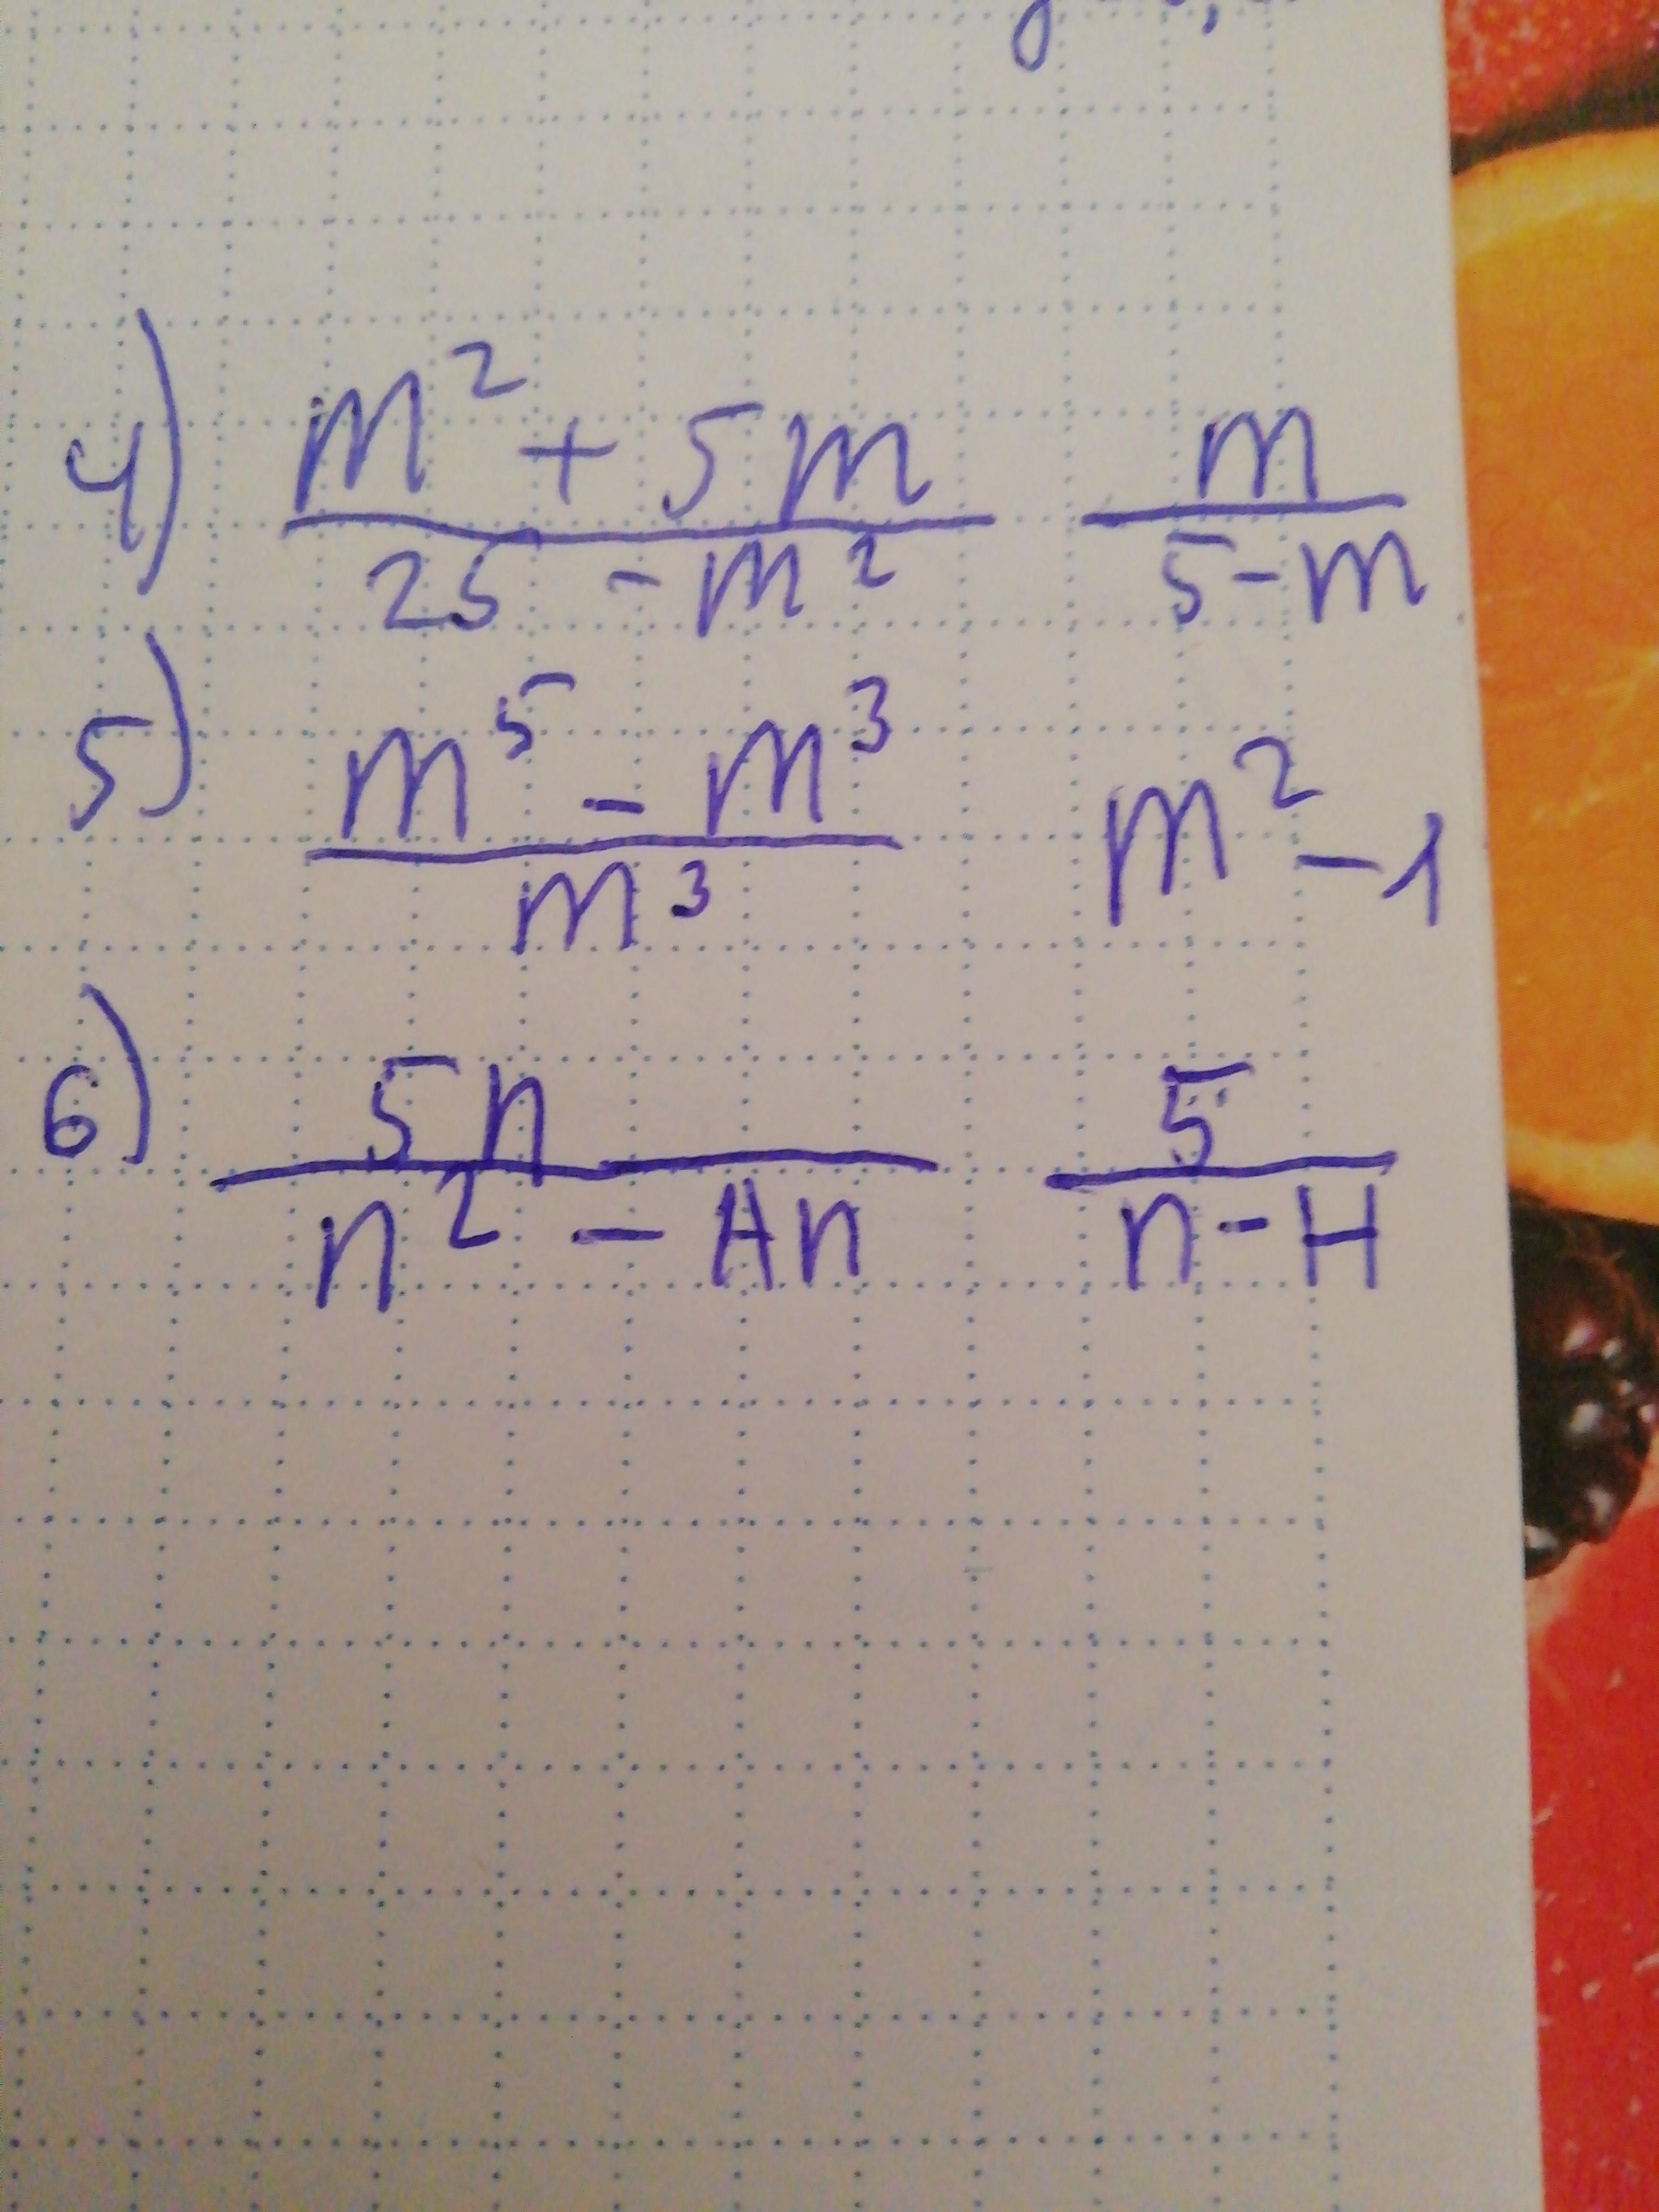 4) (m² + 5m)/(25 - m²) m/(5-m)
5) (m⁵ - m³)/m³ m² - 1
6) 5n/(n² - An) 5/(n-H)